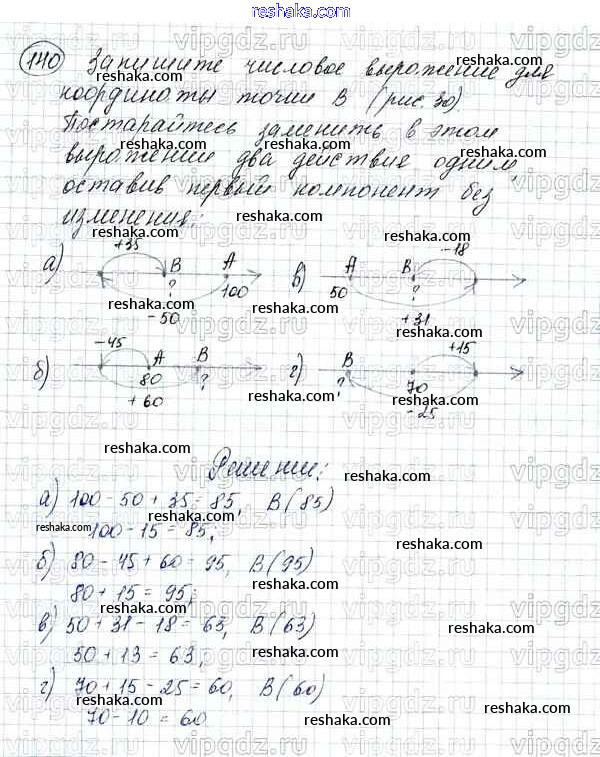 reshaka.com
140 Запишите числовое выражение для
координаты точки В (рис. 30)
Постарайтесь заменить в этом
выражении два действие одним
оставив первый компонент без
изменения:
а) +35 В А ? 100 -50
в) -18 А В 50 ? +31
б) -45 А В 80 ? +60
г) +15 В ? 70 -25
Решение:
а) 100 - 50 + 35 = 85, В(85)
100 - 15 = 85;
б) 80 - 45 + 60 = 95, В(95)
80 + 15 = 95;
в) 50 + 31 - 18 = 63, В(63)
50 + 13 = 63;
г) 70 + 15 - 25 = 60, В(60)
70 - 10 = 60